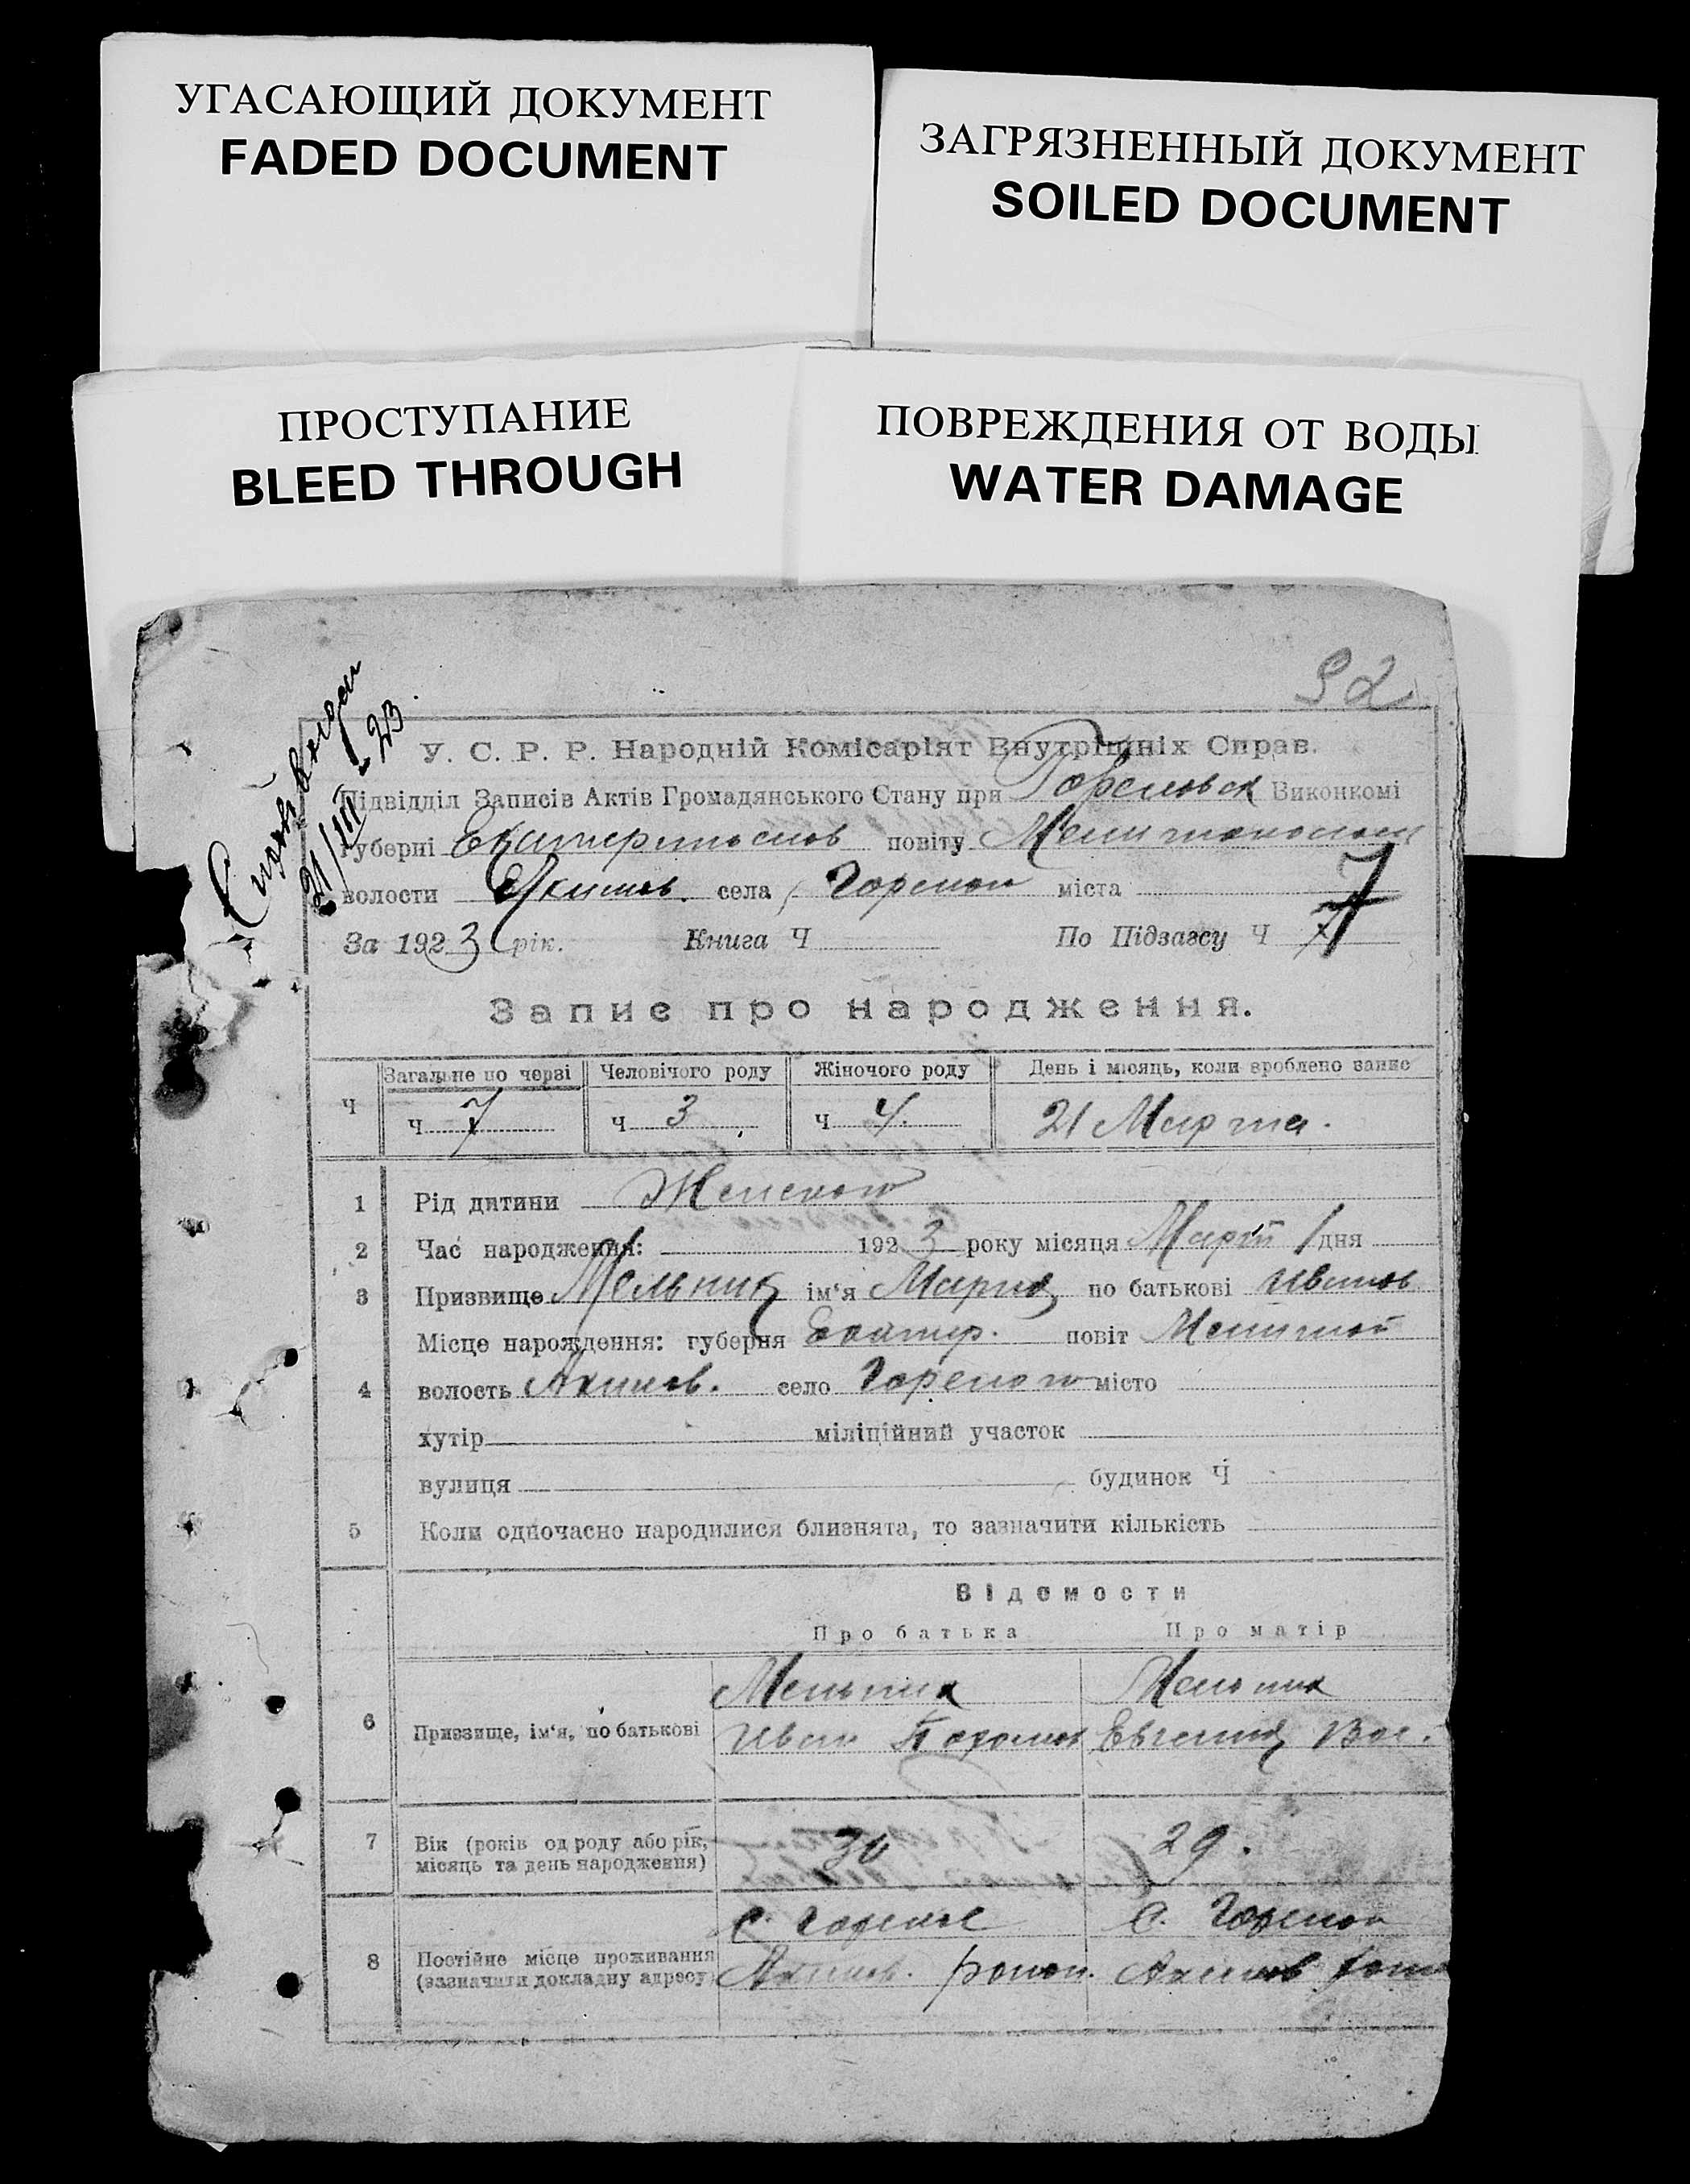 УГАСАЮЩИЙ ДОКУМЕНТ
FADED DOCUMENT
ЗАГРЯЗНЕННЫЙ ДОКУМЕНТ
SOILED DOCUMENT
ПРОСТУПАНИЕ
BLEED THROUGH
ПОВРЕЖДЕНИЯ ОТ ВОДЫ
WATER DAMAGE
21/III-23
У. С. Р. Р. Народній Комісаріят Внутрішніх Справ.
Підвідділ Записів Актів Громадянського Стану при Гореловск Виконкомі
губерні повіту
волости Акимов. села Горелое міста
За 1923 рік. Книга Ч По Підзагсу Ч 7
Запис про народження.
Ч Загальне по черзі Человічого роду Жіночого роду День і місяць, коли зроблено запис
Ч 7 Ч 3 Ч 4. 21 Марта.
1 Рід дитини Женского
2 Час народження: 1923 року місяця Март 1 дня
3 Призвище Мельник ім'я Мария по батькові Иванов
Місце нарождення: губерня Екатер. повіт Мелитоп
4 волость Акимов. село Горелого місто
хутір міліційний участок
вулиця будинок Ч
5 Коли одночасно народилися близнята, то зазначити кількість
Відомости
Про батька Про матір
Мельник Мельник
6 Призвище, ім'я, по батькові Иван Евгения Вас.
7 Вік (років од роду або рік, місяць та день народження) 30 29.
С. Горелое С. Горелое
8 Постійне місце проживання (зазначити докладну адресу) Акимов. район. Акимов